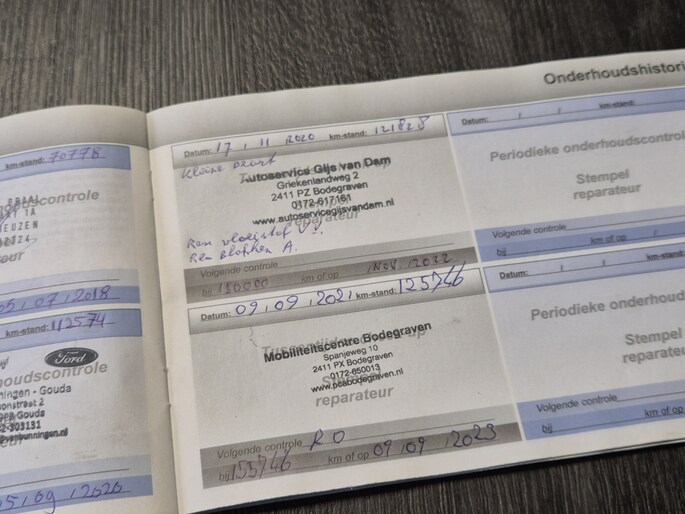 Onderhoudshistori
km-stand: 70778
controle
05, 07, 2018
km-stand: 112574
Ford
houdscontrole
ningen - Gouda
Gouda
reparateur
15, 09, 2020
Datum: 17, 11 2020 km-stand: 121828
Kleine beurt
Autoservice Gijs van Dam
Griekenlandweg 2
2411 PZ Bodegraven
0172-617161
www.autoservicegijsvandam.nl
reparateur
Rem vloeistof V!!
Rem blokken A.
Volgende controle
bij 150000 km of op Nov. 2022
Datum: 09, 09, 2021 km-stand: 125746
Mobiliteitscentre Bodegraven
Spanjeweg 10
2411 PX Bodegraven
0172-650013
www.pcabodegraven.nl
reparateur
Volgende controle RO
bij 155746 km of op 09, 09, 2023
Datum: / / km-stand:
Periodieke onderhoudscontrol
Stempel
reparateur
Volgende controle
bij km of op / /
Datum: / / km-stand:
Periodieke onderhoud
Stempel
reparateur
Volgende controle
bij km of op /